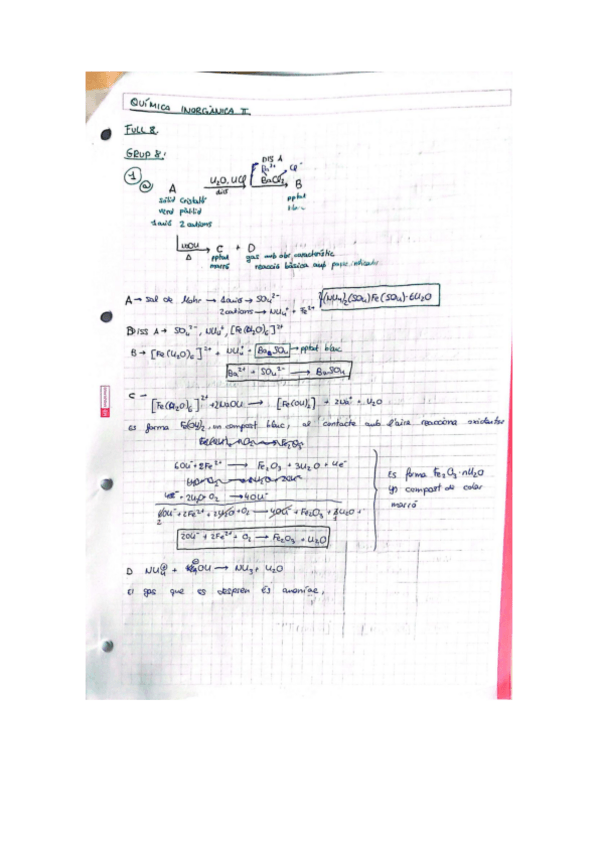 QUÍMICA INORGÀNICA II.
FULL 8.
GRUP 8:
1
a) A H2O, HCl DISS A Ba2+ Cl- BaCl2 B
diss
sòlid cristal·lí pptat
verd pàl·lid blanc
1 anió 2 cations
NaOH C + D
Δ pptat gas amb olor característic
marró reacció bàsica amb paper indicador
A → sal de Mohr → 1 anió → SO4 2- (NH4)2(SO4)Fe(SO4)·6H2O
2 cations → NH4+ + Fe2+
DISS A → SO4 2-, NH4+, [Fe(H2O)6]2+
B → [Fe(H2O)6]2+ + NH4+ + BaSO4 → pptat blanc
Ba2+ + SO4 2- → BaSO4
C →
[Fe(H2O)6]2+ + 2NaOH → [Fe(OH)2] + 2Na+ + H2O
es forma Fe(OH)2, un compost blanc, al contacte amb l'aire reacciona
6OH- + 2Fe2+ → Fe2O3 + 3H2O + 4e-
4e- + 2H2O + O2 → 4OH-
6OH- + 2Fe2+ + 2H2O + O2 → 4OH- + Fe2O3 + 3H2O
2OH- + 2Fe2+ + O2 → Fe2O3 + H2O
Es forma Fe2O3·nH2O
un compost de color
marró
D NH4+ + OH → NH3 + H2O
El gas que es desprèn és amoníac,